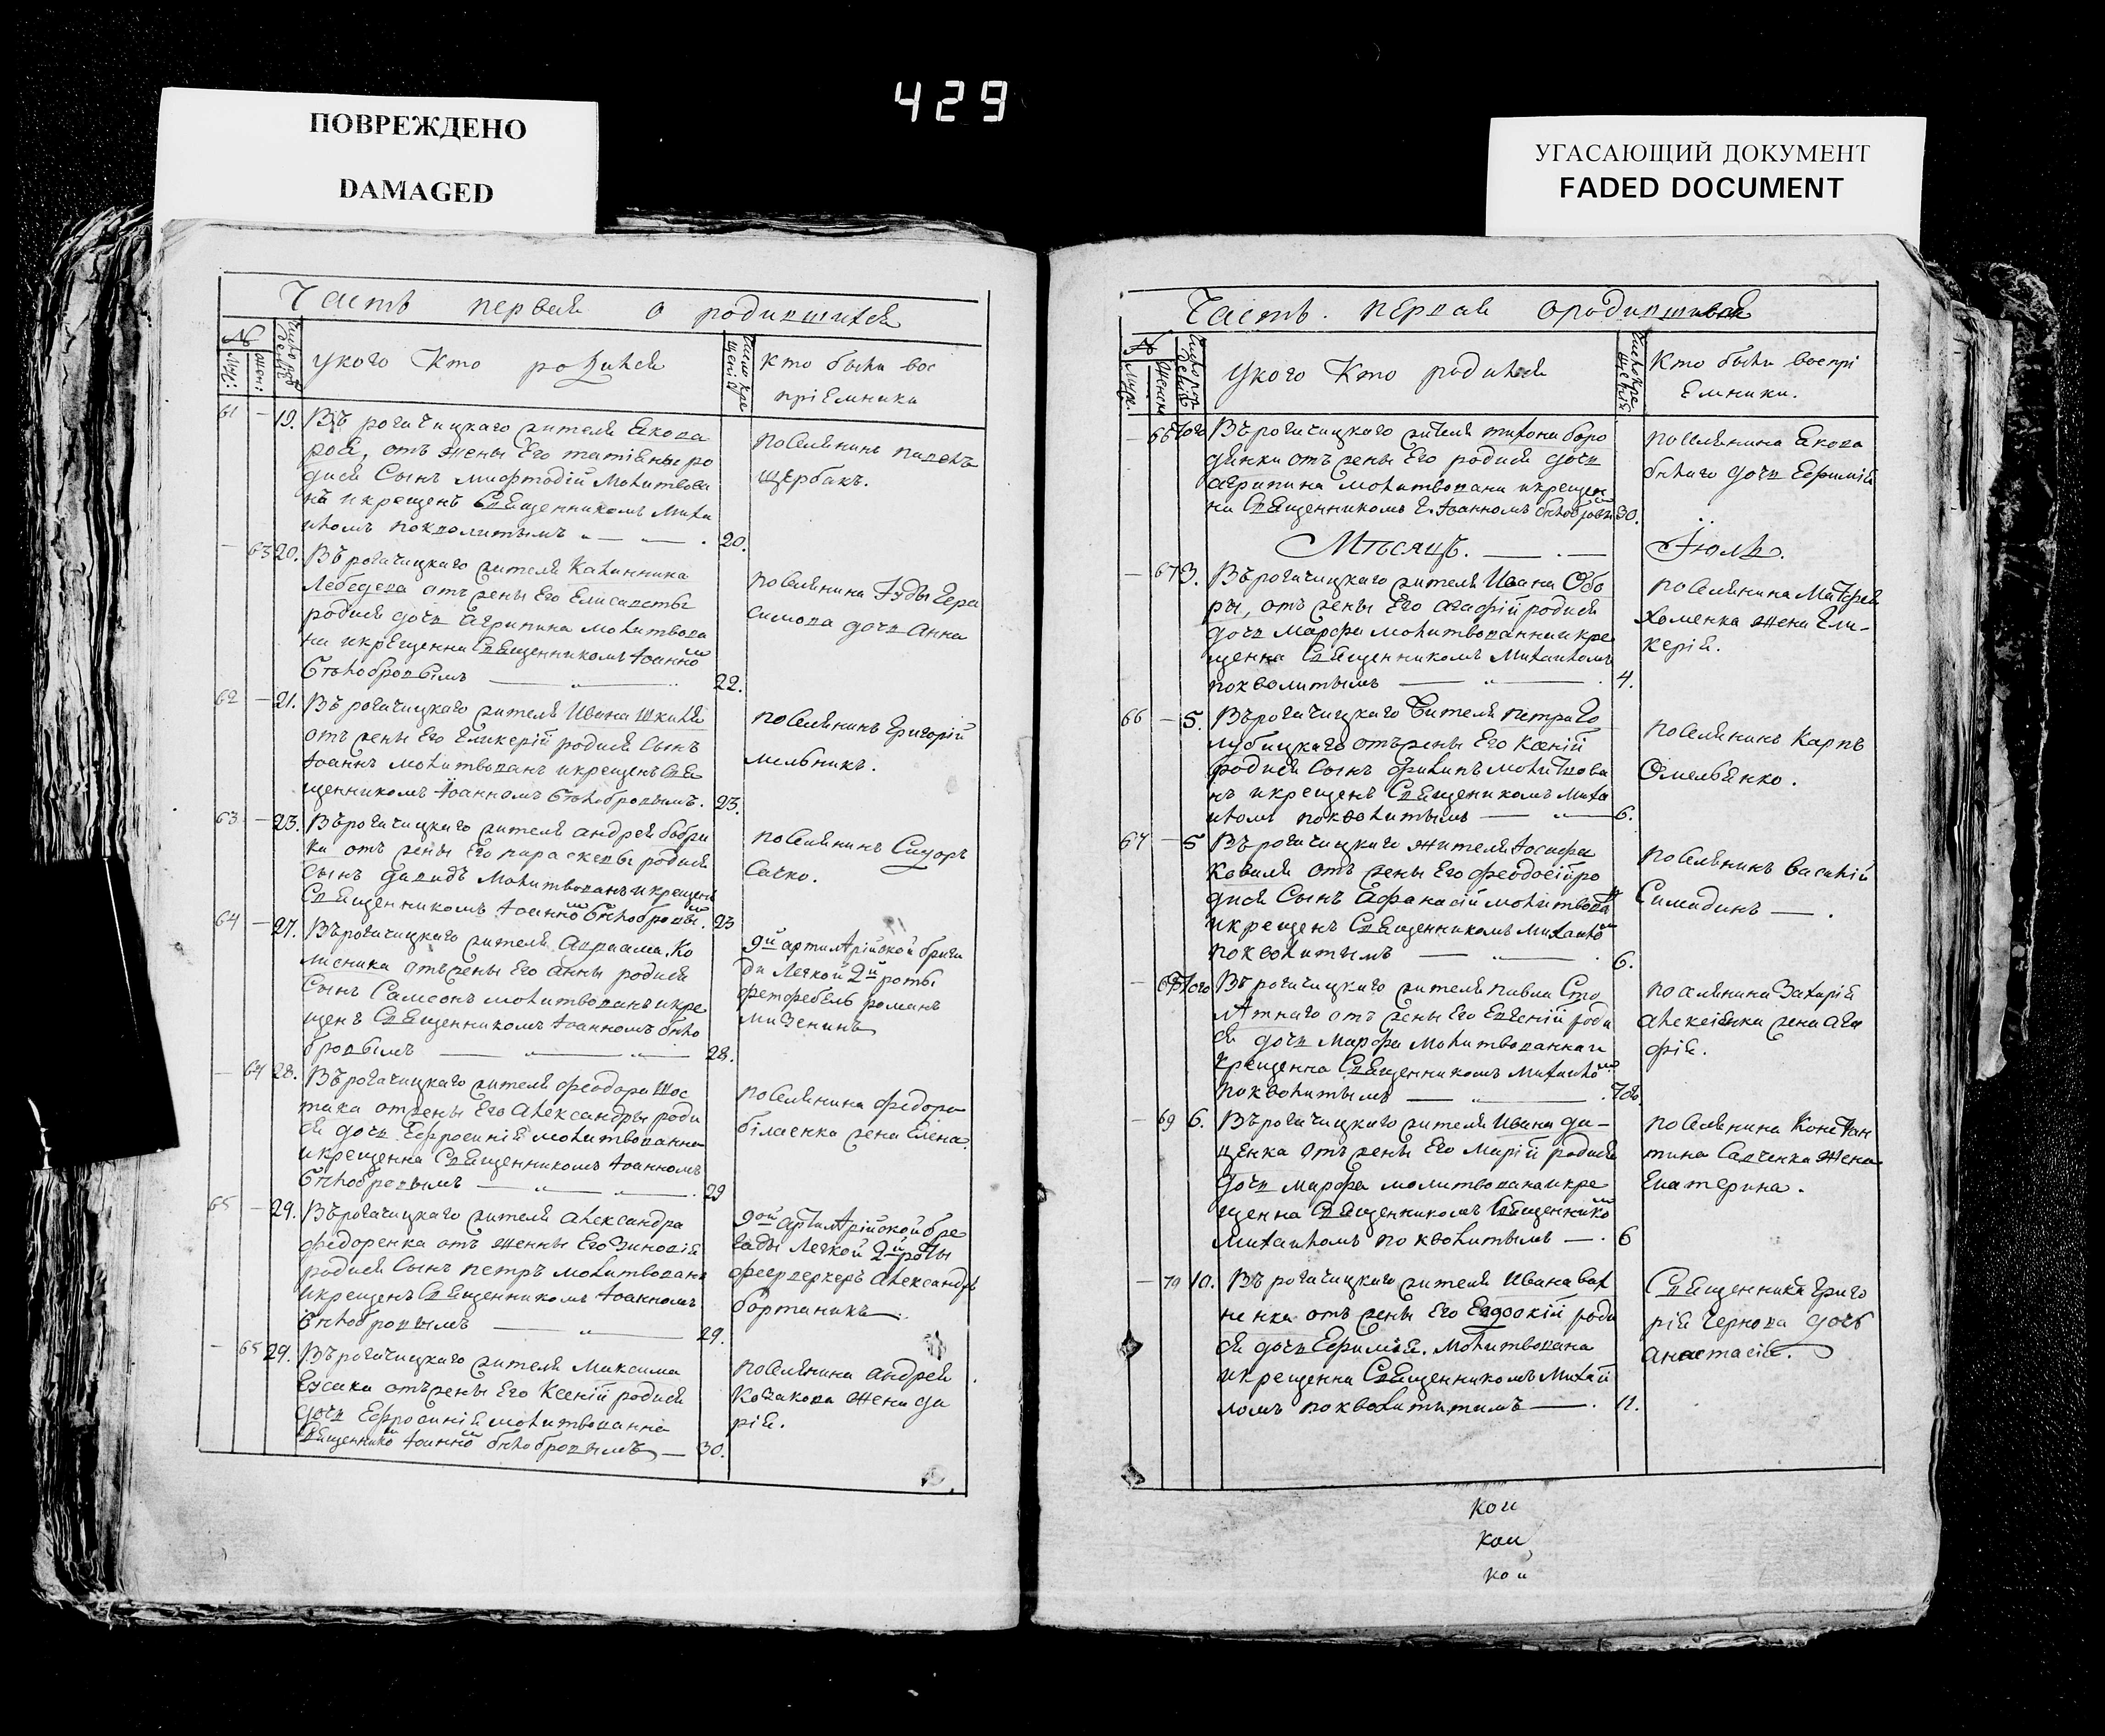 429
ПОВРЕЖДЕНО
DAMAGED
УГАСАЮЩИЙ ДОКУМЕНТ
FADED DOCUMENT
Часть первая о родившихся
№
Муж:
жен:
укого Кто родился
Кто были вос
пріемники
61 — 19. Въ рогачицкаго жителя Якова
отъ жены Его татіаны ро
дися Сынъ мифтодій молитвова
нъ икрещенъ Священникомъ Миха
иломъ поквалитымъ 20.
поселянинъ павелъ
щербакъ.
— 63 20. Въ рогачицкаго жителя Калинника
Лебедева отъ жены Его Елисаветы
родися дочь агрипина молитвова
на икрещенна Священникомъ Іоанно м
Белобродвымъ 22.
поселянина Іуды Гера
симова дочь анна
62 — 21. Въ рогачицкаго жителя Ивана шкиля
отъ жены Его Гликерій родися Сынъ
Іоаннъ молитвованъ икрещенъ Свя
щенникомъ Іоанномъ Белобровымъ. 23.
поселянинъ григорій
мельникъ.
63 — 23. Въ рогачицкаго жителя андрея бобри
ка отъ жены Его параскевы родися
Сынъ давидъ молитвованъ икрещенъ
Священникомъ Іоанно м Белобровы м. 23
поселянинъ Сидоръ
Сачко.
64 — 27. Въ рогачицкаго жителя авраама Ко
лисника отъ жены Его анны родися
Сынъ Самсонъ молитвованъ икре
щенъ Священникомъ Іоанномъ бело
бровымъ 28.
9й артилерійской брига
ды Легкой 2й роты
фетфебель романъ
мизенинъ
— 64 28. Въ рогачицкаго жителя феодора шос
така отжены Его александры роди
ся дочь Ефросинія молитвованна
икрещенна Священникомъ Іоанномъ
Белобровымъ 29
поселянина федора
білаенка жена Елена
65 — 29. Въ рогачицкаго жителя александра
федоренка отъ женны Его Зиновія
родися Сынъ петръ молитвованъ
икрещенъ Священникомъ Іоанномъ
Белобровымъ 29.
9ой артилерійской бре
гады Легкой 2й роты
феерверкеръ александръ
бортаникъ
— 65 29. Въ рогачицкаго жителя Максима
Гусака отъ жены Его Ксеній родися
дочь Ефросинія молитвованна
Священнико м Іоанно м белобровымъ — 30.
поселянина андрея
Козакова жена да
рія.
Часть. первая ородившихся
№
Муж.
женск
укого Кто родился
Кто были воспрі
Емники.
— 66 того Въ рогачицкаго жителя тихона боро
денки отъ жены Его родися дочь
агрипина молитвована икрещен
на Священникомъ Е. Іоанномъ белобровы м 30.
поселянина Якова
білаго дочь Ефимія
Мѣсяць. — . — Іюль.
— 67 3. Въ рогачицкаго жителя Ивана Обо
ры, отъ жены Его агафій родися
дочь марфа молитвованна икре
щенна Священникомъ Михаиломъ
поквалитымъ 4.
поселянина Матфея
Хоменка жена Гли-
керія.
66 — 5. Въ рогачицкаго жителя петра Го
лубицкаго отъ жены Его Ксеній
родися Сынъ филипъ молитвова
нъ икрещенъ Священикомъ миха
иломъ поквалитымъ 6.
поселянинъ Карпъ
Омельянко.
67 — 5 Въ рогачицкаго жителя Іосифа
Коваля отъ жены Его феодосій ро
дися Сынъ Афанасій молитвова н
икрещенъ Священникомъ михаило м
поквалитымъ 6.
поселянинъ василій
Симадинъ — .
— 68 того Въ рогачицкаго жителя павла Сто
летнаго отъ жены Его Евгеній роди
ся дочь марфа молитвованна и
крещенна Священникомъ михаило м
поквалитымъ
поселянина Захарія
алексіенка жена ага
фія.
— 69 6. Въ рогачицкаго жителя Ивана да-
ценка отъ жены Его Марій родися
дочь марфа молитвована икре
щенна Священникомъ Священнико м
Михаиломъ поквалитымъ — . 6
поселянина Констан
тина Савченка жена
Екатерина.
— 70 10. Въ рогачицкаго жителя Ивана вах
ненка отъ жены Его Евдокій роди
ся дочь Ефимія. молитвована
икрещенна Священникомъ Михай
ломъ поквалитымъ — . 11.
Священника григо
рія Чернова дочь
анастасія.
кои
кои,
кои